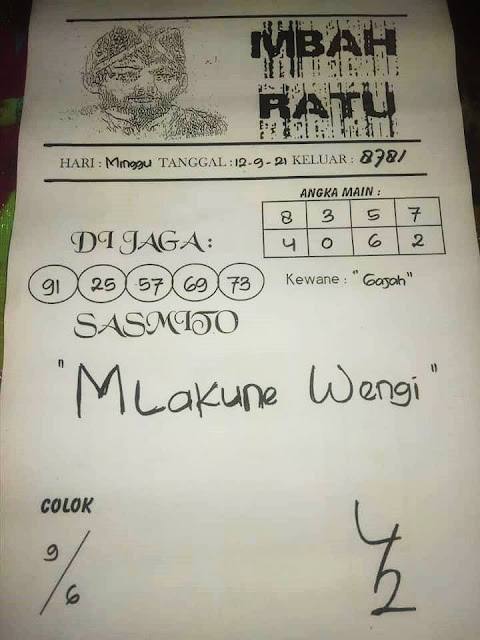 MBAH
RATU
HARI : Minggu TANGGAL : 12-9-21 KELUAR : 8781
ANGKA MAIN :
8 3 5 7
4 0 6 2
DI JAGA :
91 25 57 69 73
Kewane : "Gajah"
SASMITO
"MLakune Wengi"
COLOK
9/6
4
2